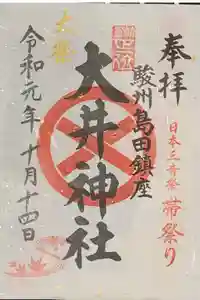 奉拝
日本三奇祭 帯祭り
駿州島田鎮座
大井神社
大祭
令和元年 十月十四日